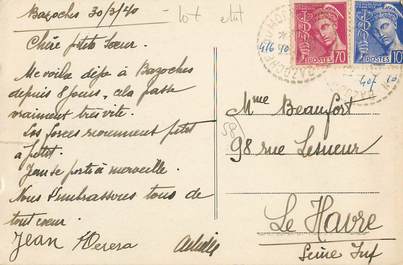 Bazoches 30/3/40
Chère petite Soeur.
Me voilà déjà à Bazoches
depuis 8 jours, cela passe
vraiment très vite.
Les forces reviennent petit
à petit.
Jean se porte à merveille.
Nous t'embrassons tous de
tout coeur.
Jean
POSTES 70
POSTES 10
416 40
407 10
Mme Beaufort
98 rue Lesueur
Le Havre
Seine Inf